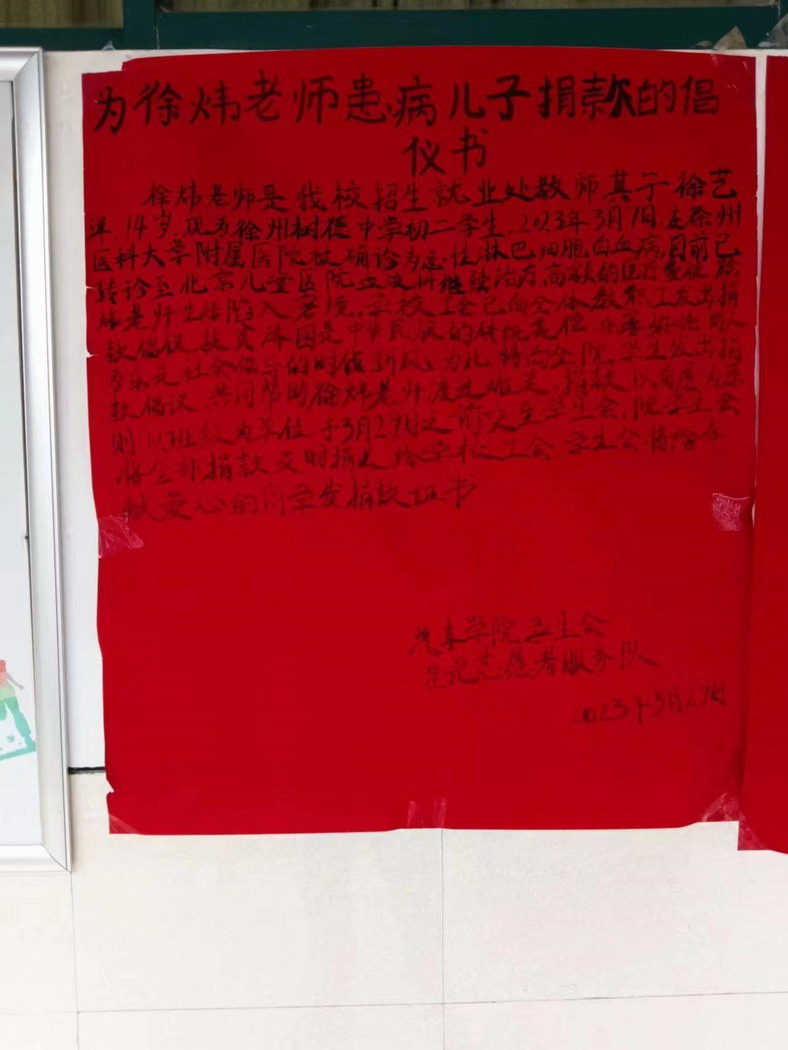 为徐炜老师患病儿子捐款的倡
仪书
徐炜老师是我校招生就业处教师其子徐艺
洋14岁,现为徐州树德中学初二学生,2023年3月7日,在徐州
医科大学附属医院被确诊为急性淋巴细胞白血病,目前已
转诊至北京儿童医院血液科继续治疗,高额的医疗费使徐
炜老师生活陷入窘境,学校工会已向全体教职工发出捐
款倡议,扶贫济困是中华民族的传统美德
为乐是社会倡导的时代新风,为此特向全院学生发出捐
款倡议,共同帮助徐炜老师渡过难关,捐款以自愿为原
则以班级为单位于3月27日之前交至学生会,院学生会
将全部捐款及时捐送给学校工会,学生会将给奉
献爱心的同学发捐款证书
汽车学院学生会
星光志愿者服务队
2023年3月27日